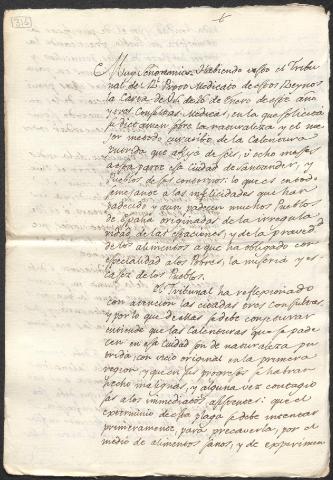 316
Muy Señor mio. Habiendo visto el Tribu-
nal del Rl. Proto Medicato de estos Reynos
la Carta de Vd. de 26 de Enero de este año
y tres Consultas Medicas, en la que solicita
su dictamen sobre la naturaleza y el me
jor metodo curativo de la Calentura
que de seis, u ocho meses
a esta parte esa Ciudad de Santander, y
Pueblos de sus contornos: lo que es en todo
semejante a las infelicidades que han
padecido y aun padecen muchos Pueblos
de España originadas de la irregula
ridad de las estaciones, y de la praved.
de los alimentos a que ha obligado con
especialidad a los Pobres, la miseria y es
casez de los Pueblos.
El Tribunal ha reflexionado
con atencion las citadas tres Consultas
y por lo que de ellas se debe conjeturar
entiende que las Calenturas que se pade
cen en esa Ciudad son de naturaleza pu
trida, con vicio original en la primera
region, y que en sus progresos se habran
hecho malignas, y alguna vez contagio
sas a los inmediatos asistentes: que el
exterminio de esta plaga se debe intentar
primeramente, para precaverla, por el
medio de alimentos sanos, y de experimen